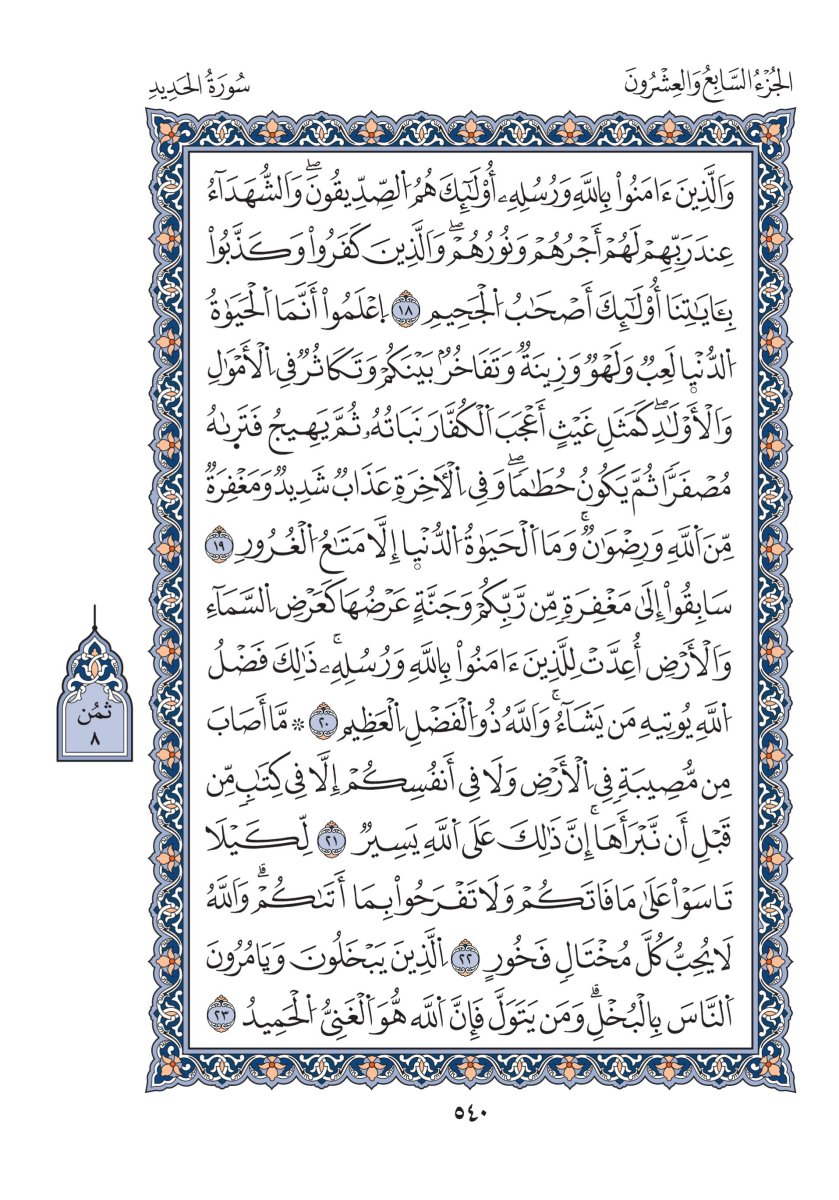 الجُزْءُ السَّابِعُ وَالعِشْرُونَ
سُورَةُ الحَدِيدِ
وَالَّذِينَ ءَامَنُواْ بِاللَّهِ وَرُسُلِهِۦ أُوْلَٰٓئِكَ هُمُ اُ۬لصِّدِّيقُونَۖ وَالشُّهَدَآءُ
عِندَ رَبِّهِمْ لَهُمْ أَجْرُهُمْ وَنُورُهُمْۖ وَالَّذِينَ كَفَرُواْ وَكَذَّبُواْ
بِـَٔايَٰتِنَا أُوْلَٰٓئِكَ أَصْحَٰبُ اُ۬لْجَحِيمِ ١٨ اِ۪عْلَمُواْ أَنَّمَا اَ۬لْحَيَوٰةُ
اُ۬لدُّنْي۪ا لَعِبٌ وَلَهْوٌ وَزِينَةٌ وَتَفَاخُرُۢ بَيْنَكُمْ وَتَكَاثُرٌ فِي اِ۬لْأَمْوَٰلِ
وَالْأَوْلَٰدِۖ كَمَثَلِ غَيْثٍ أَعْجَبَ اَ۬لْكُفَّارَ نَبَاتُهُۥ ثُمَّ يَهِيجُ فَتَر۪ىٰهُ
مُصْفَرّٗا ثُمَّ يَكُونُ حُطَٰمٗاۖ وَفِي اِ۬لْأٓخِرَةِ عَذَابٌ شَدِيدٌ وَمَغْفِرَةٌ
مِّنَ اَ۬للَّهِ وَرِضْوَٰنٌۚ وَمَا اَ۬لْحَيَوٰةُ اُ۬لدُّنْي۪ا إِلَّا مَتَٰعُ اُ۬لْغُرُورِ ١٩
سَابِقُواْ إِلَىٰ مَغْفِرَةٖ مِّن رَّبِّكُمْ وَجَنَّةٍ عَرْضُهَا كَعَرْضِ اِ۬لسَّمَآءِ
وَالْأَرْضِ أُعِدَّتْ لِلَّذِينَ ءَامَنُواْ بِاللَّهِ وَرُسُلِهِۦۚ ذَٰلِكَ فَضْلُ
اُ۬للَّهِ يُوتِيهِ مَن يَشَآءُۚ وَاللَّهُ ذُو اُ۬لْفَضْلِ اِ۬لْعَظِيمِ ٢٠ ۞ مَّا أَصَابَ
مِن مُّصِيبَةٖ فِي اِ۬لْأَرْضِ وَلَا فِي أَنفُسِكُمْ إِلَّا فِي كِتَٰبٖ مِّن
قَبْلِ أَن نَّبْرَأَهَاۚ إِنَّ ذَٰلِكَ عَلَى اَ۬للَّهِ يَسِيرٌ ٢١ لِّكَيْلَا
تَاسَوْاْ عَلَىٰ مَا فَاتَكُمْ وَلَا تَفْرَحُواْ بِمَا أَتَىٰكُمْۗ وَاللَّهُ
لَا يُحِبُّ كُلَّ مُخْتَالٖ فَخُورٍ ٢٢ اِ۬لَّذِينَ يَبْخَلُونَ وَيَامُرُونَ
اَ۬لنَّاسَ بِالْبُخْلِۗ وَمَن يَتَوَلَّ فَإِنَّ اَ۬للَّهَ هُوَ اَ۬لْغَنِيُّ اُ۬لْحَمِيدُ ٢٣
ثُمُن
٨
٥٤٠